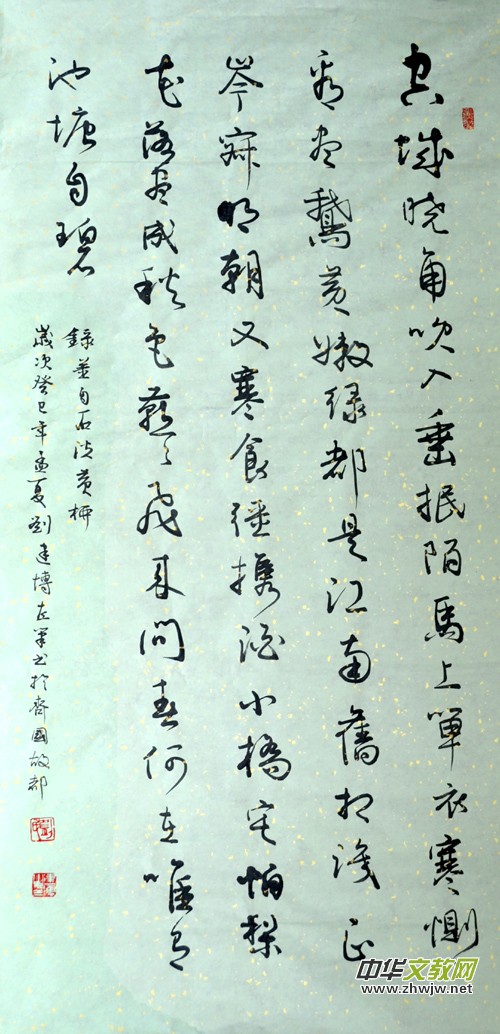 空城晓角吹入垂楊陌馬上單衣寒惻
看盡鵝黄嫩绿都是江南舊相識正
岑寂明朝又寒食彊携酒小橋宅怕梨
花落盡成秋色燕々飛来問春何在唯有
池塘自碧
錄姜白石淡黄柳
歲次癸巳年孟夏劉建博左筆书於齊國故都
中华文教网
www.zhwjw.net